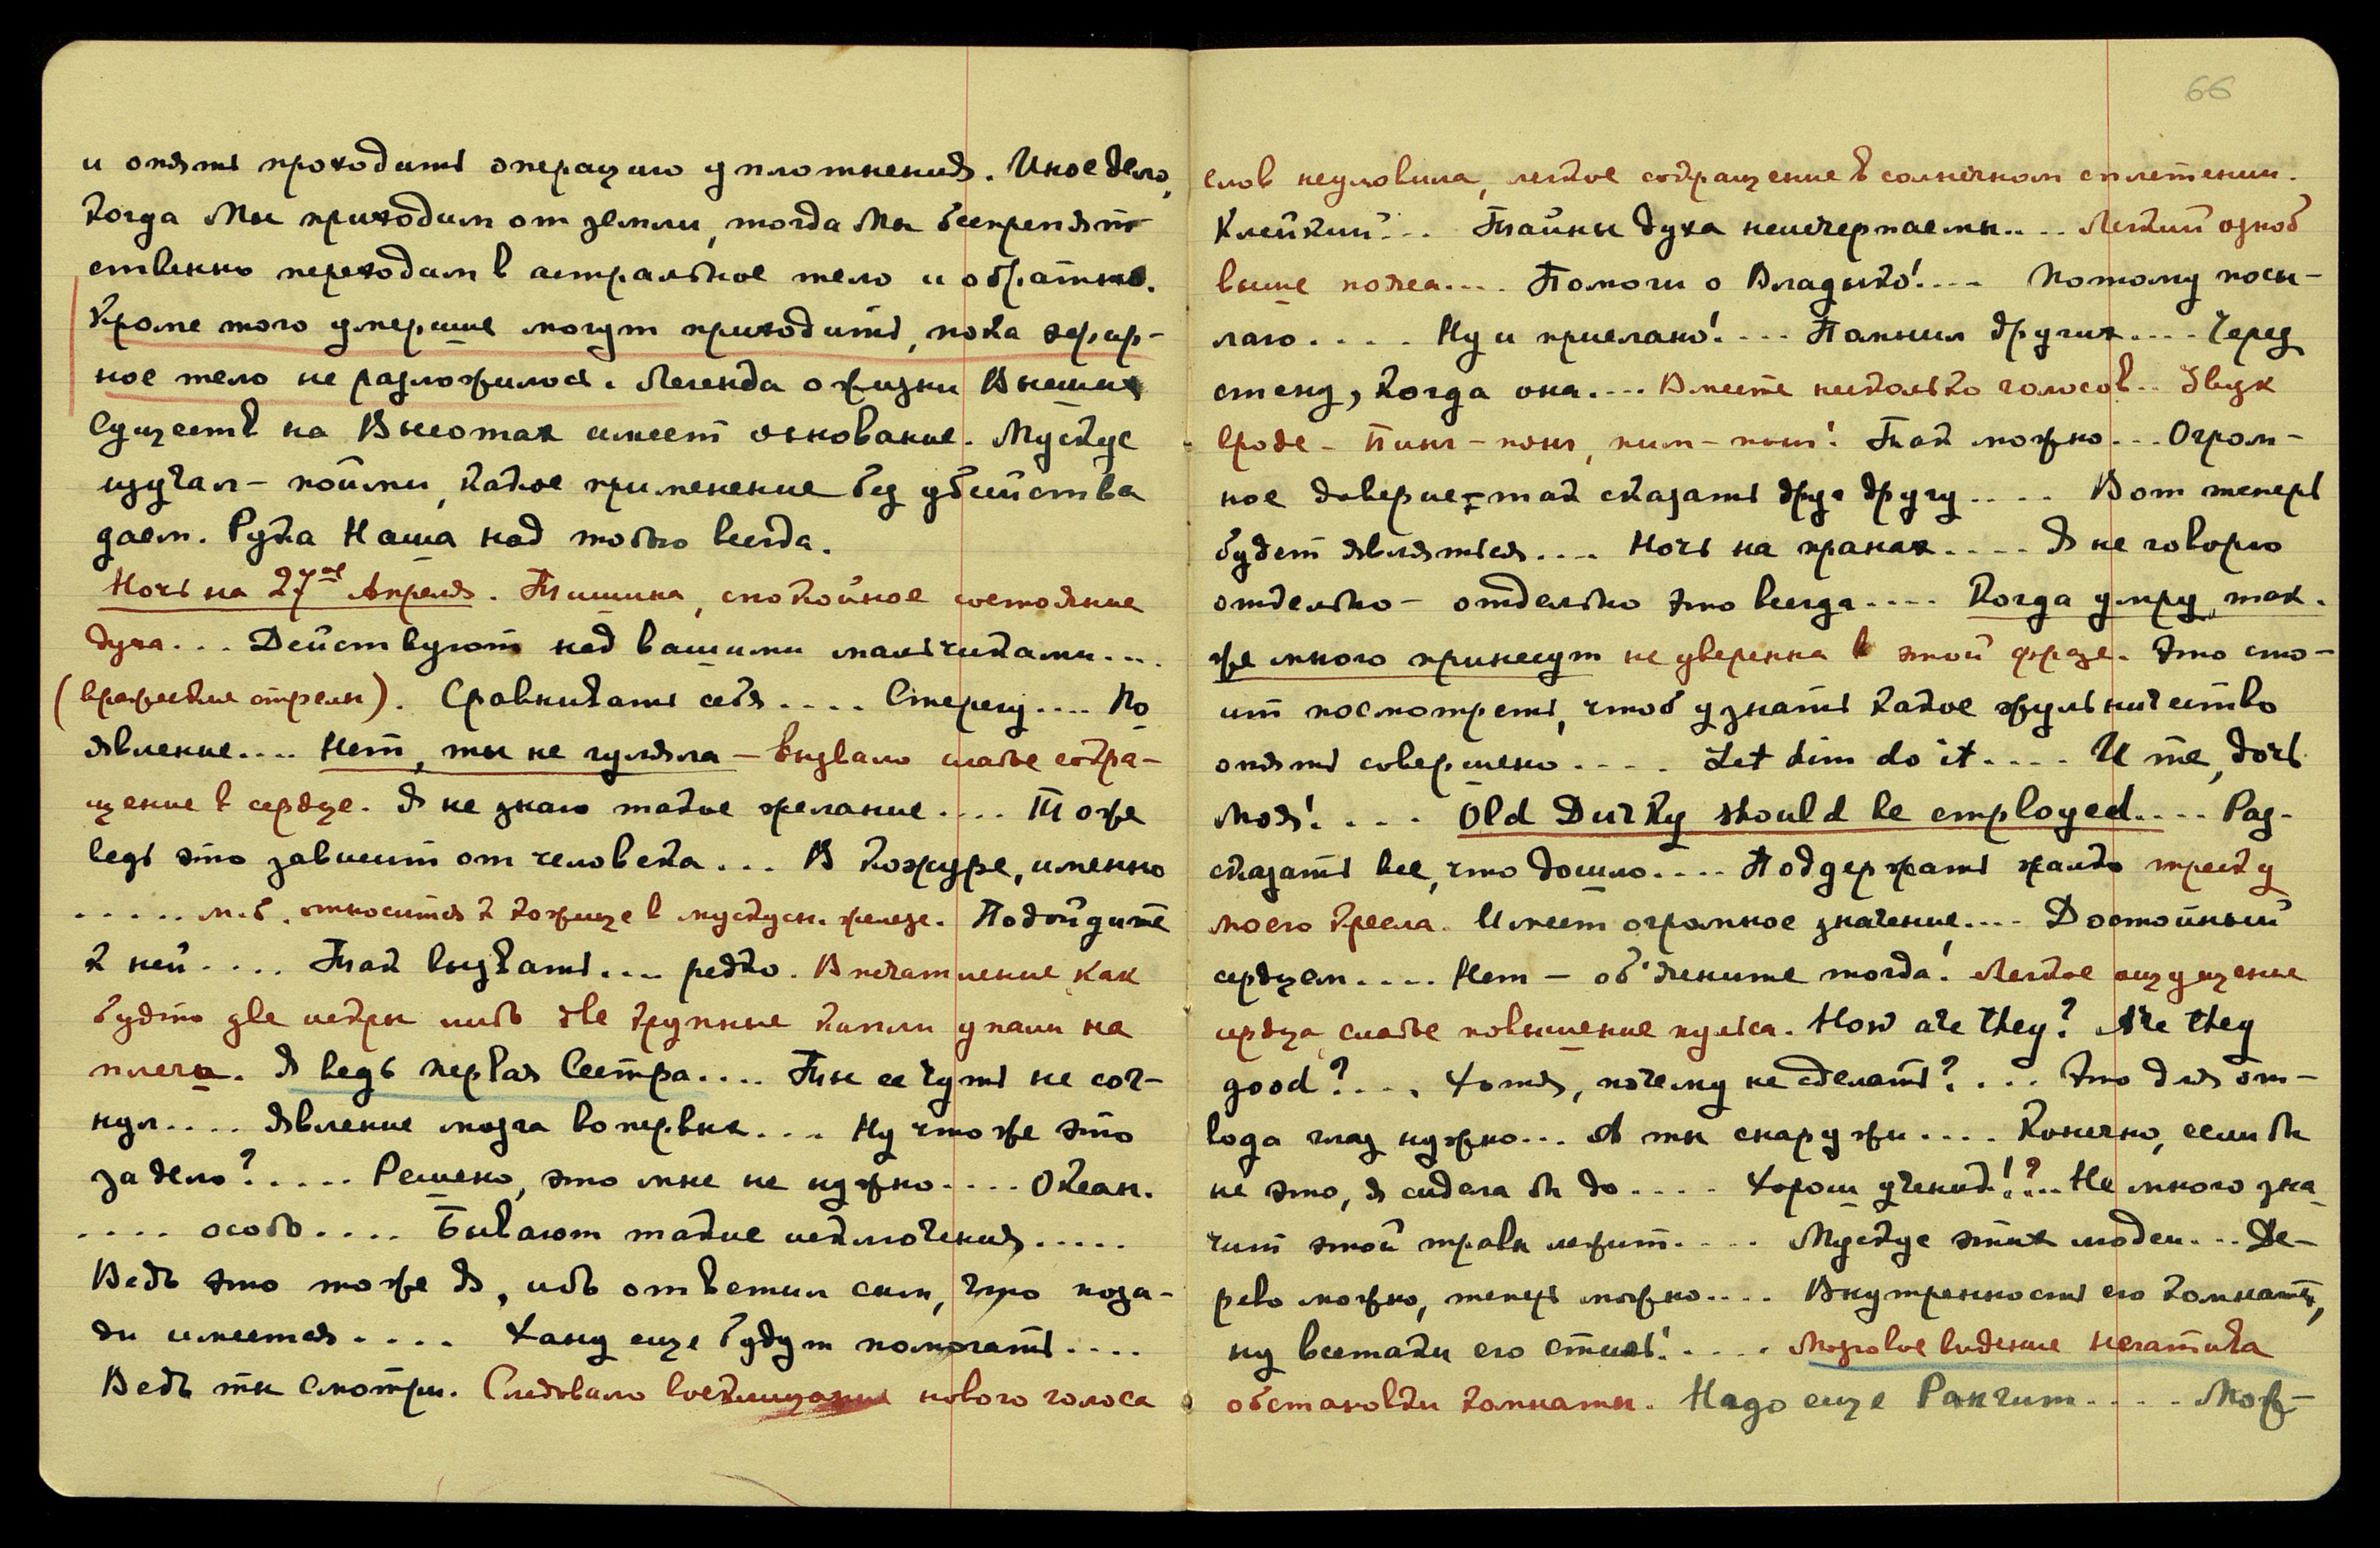 и опять проходить операцию уплотнения. Иное дело,
когда Мы приходим от земли, тогда Мы беспрепят-
ственно переходим в астральное тело и обратно.
Кроме того умершие могут приходить, пока эфир-
ное тело не разложилось. Легенда о жизни Высших
Существ на Высотах имеет основание. Мускус
изучал – пойми, какое применение без убийства
даем. Рука Наша над тобою всегда.
Ночь на 27ое Апреля. Тишина, спокойное состояние
духа... Действуют над вашими мальчиками....
(вражеские стрелы). Сравнивать себя .... Стерегу.... По
явление.... Нет, ты не гуляла – вызвало слабое сокра-
щение в сердце. Я не знаю такое желание.... Тоже
ведь это зависит от человека... В кожуре, именно
..... м.б. относится к кожице в мускусн. железе. Подойдите
к ней.... Так вызвать.... редко. Впечатление как
будто две искры либо две крупные капли упали на
плечи. Я ведь первая Сестра.... Ты ее чуть не сог-
нул.... Явление мозга вопервых.... Ну что же это
за дело?..... Решено, это мне не нужно.... Океан.
.... особо.... Бывают такие исключения.....
Ведь это тоже я, ибо ответил сам, что поза-
ди имеется.... Хану еще будут помогать....
Ведь ты смотри. Следовало восклицание нового голоса
66
слов неуловила, легкое сокращение в солнечном сплетении.
Клейкий... Тайны духа неисчерпаемы.... Легкий озноб
выше пояса.... Помоги о Владыко!.... Потому посы-
лаю.... Ну и прислано!.... Панхил других.... Через
стену, когда она.... Вместе несколько голосов.. Звук
вроде – Пинг-понг, пим-пом! Так можно... Огром-
ное доверие – так сказать друг другу.... Вот теперь
будет являться.... Ночь на пранах.... Я не говорю
отдельно – отдельно это всегда.... Когда умру, так-
же много принесут не уверенна в этой фразе. Это сто-
ит посмотреть, чтоб узнать какое жульничество
опять совершено.... Let him do it.... И те, дочь
моя!.... Old Durky should be employed.... Рас-
сказать все, что дошло.... Поддержать жалко треску
моего кресла. Имеет огромное значение.... Достойный
сердцем.... Нет – об'ясните тогда! Легкое ощущение
сердца, слабое повышение пульса. How are they? Are they
good?.... Хотя, почему не сделать?.... Это для от-
вода глаз нужно... А ты снаружи.... Конечно, если бы
не это, я сидела бы до.... Хорош ученик!?... Не много зна
чит этой травы лежит.... Мускус этих людей... Де-
рево можно, теперь можно.... Внутренность его комнаты,
ну всетаки его стиль!.... Мозговое видение негатива
обстановки комнаты. Надо еще Ранчит.... Мож-